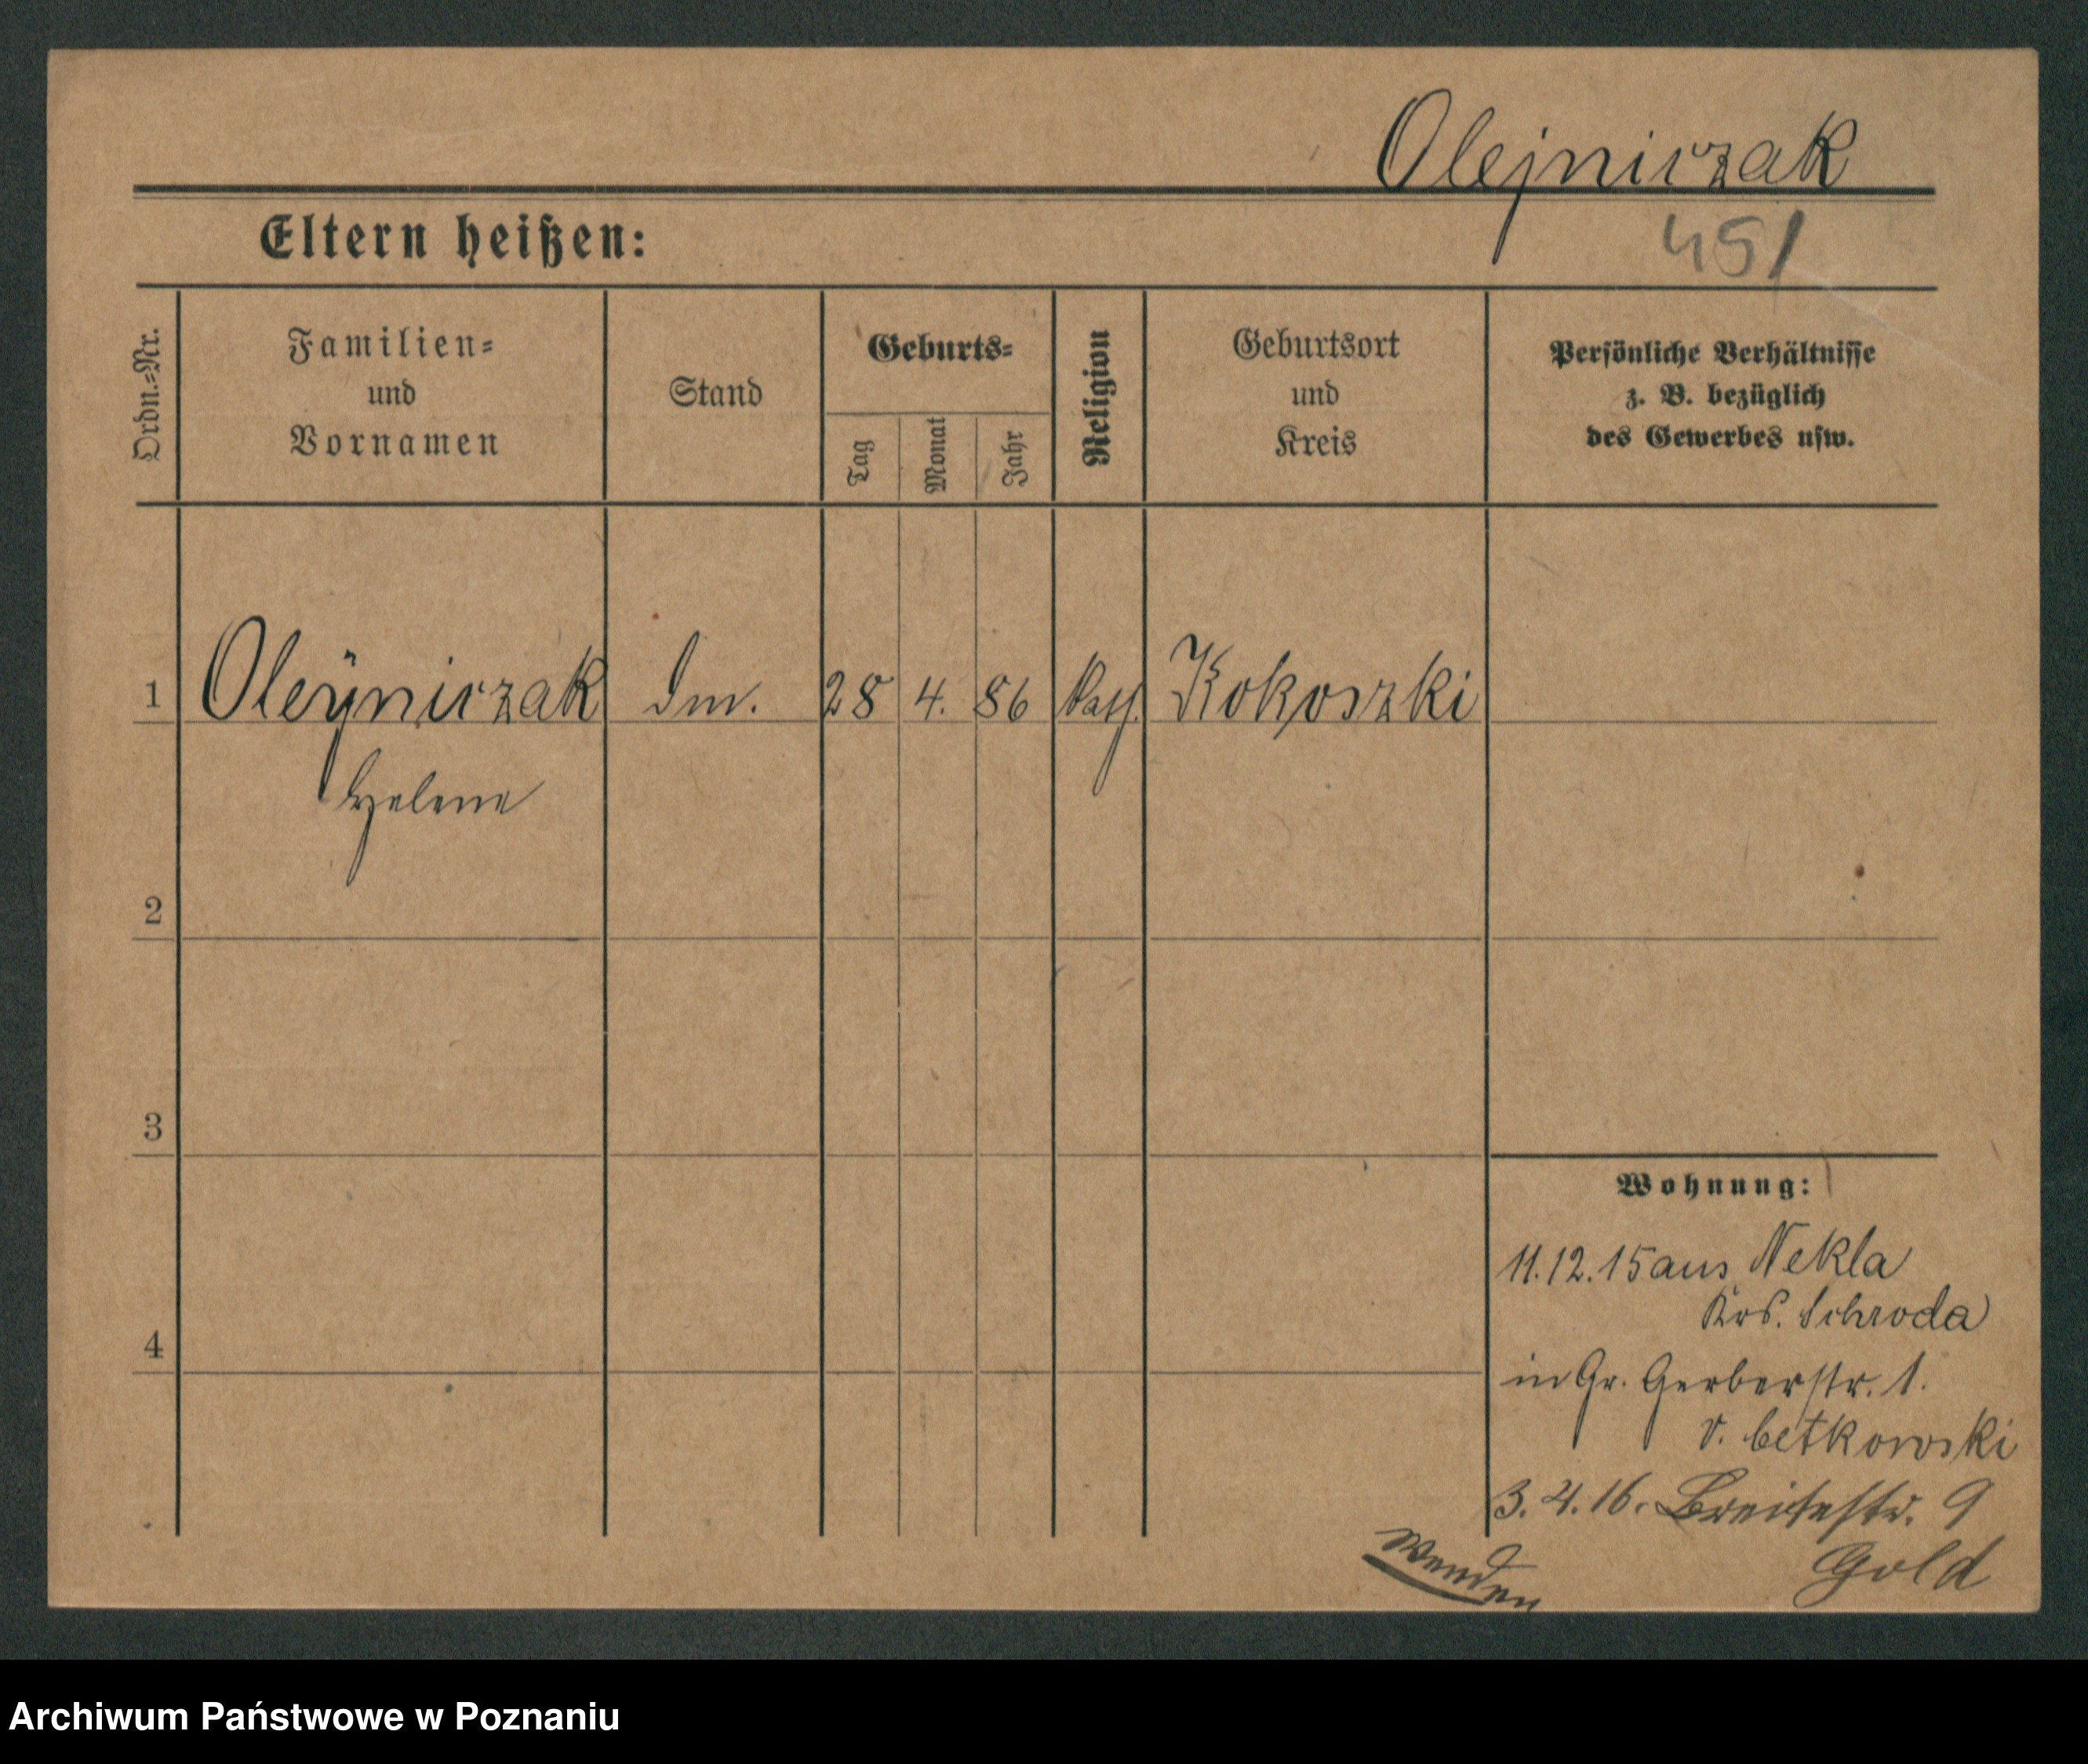 Olejniczak
451
Eltern heißen:
Ordn.=Nr.
Familien=
und
Vornamen
Stand
Geburts=
Tag
Monat
Jahr
Religion
Geburtsort
und
Kreis
Persönliche Verhältnisse
z. B. bezüglich
des Gewerbes usw.
1 Oleÿniczak 28 4. 86 Kath. Kokoszki
Helene
2
3
4
Wohnung:
11.12.15 aus Nekla
Krs. Schroda
in Gr. Gerberstr. 1.
v. Cetkowski
3. 4. 16. Breitestr. 9
Gold
Wenden
Archiwum Państwowe w Poznaniu